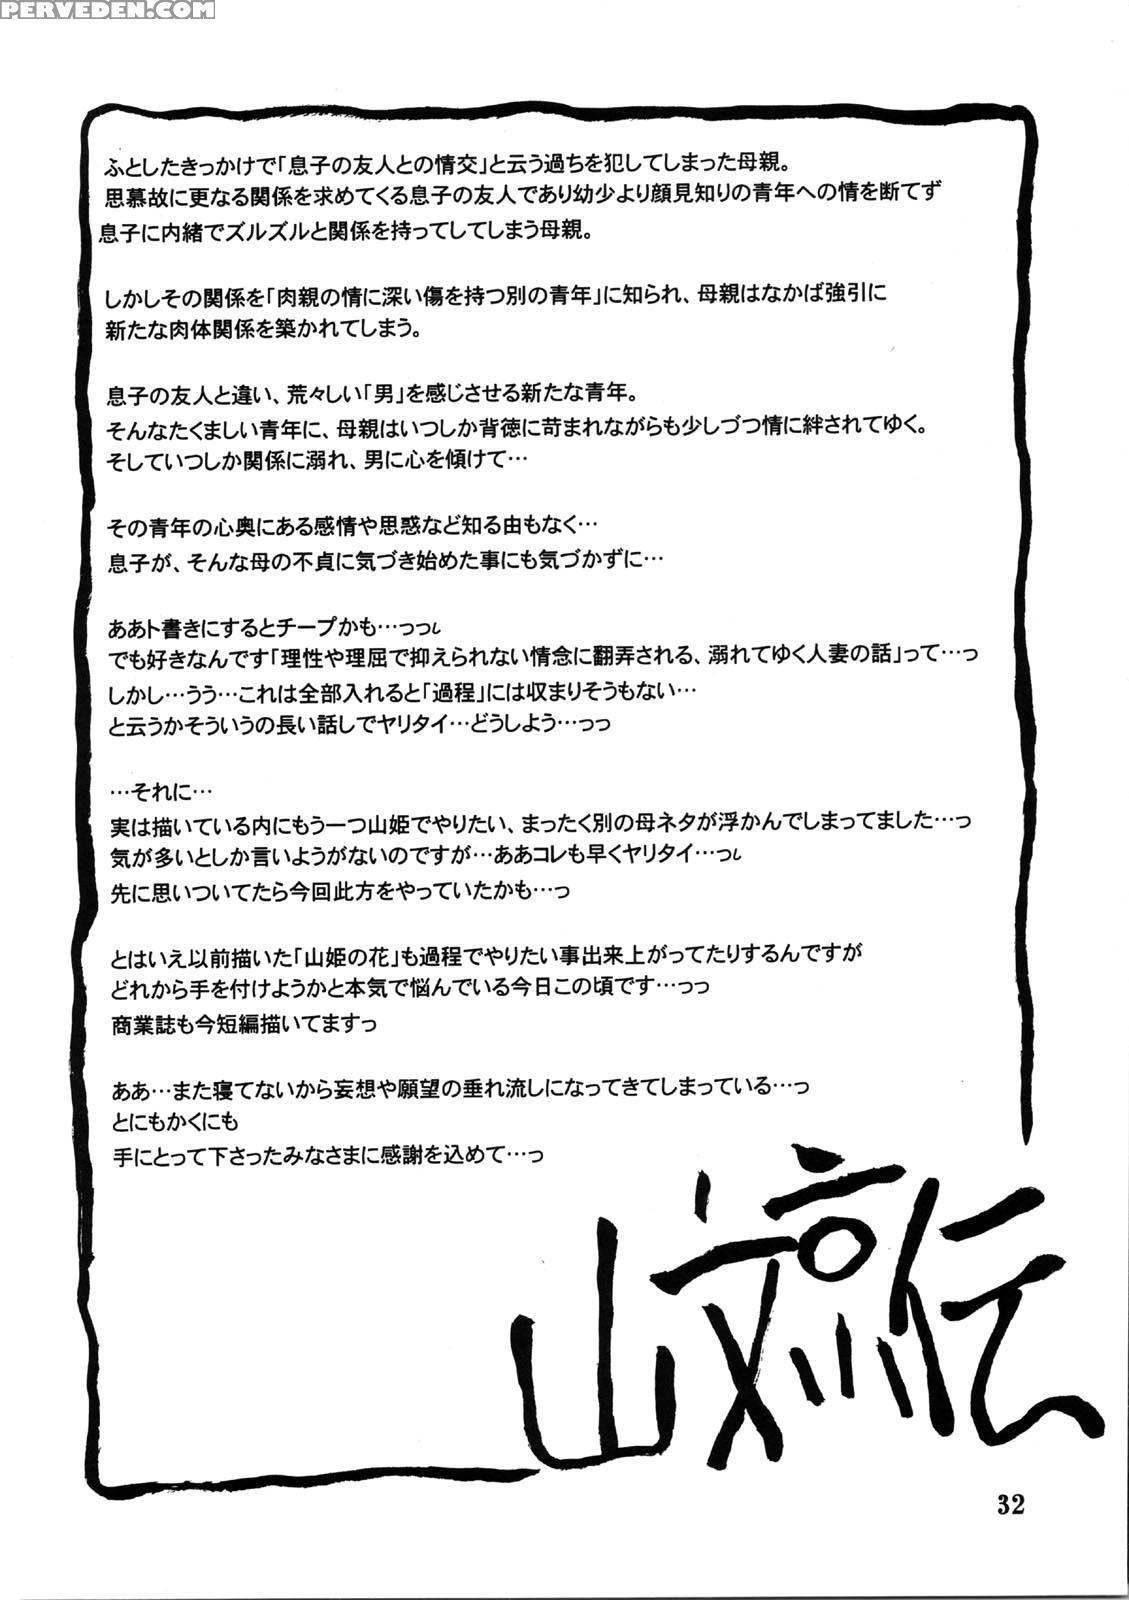 PERVEDEN.COM
ふとしたきっかけで「息子の友人との情交」と云う過ちを犯してしまった母親。
思慕故に更なる関係を求めてくる息子の友人であり幼少より顔見知りの青年への情を断てず
息子に内緒でズルズルと関係を持ってしてしまう母親。
しかしその関係を「肉親の情に深い傷を持つ別の青年」に知られ、母親はなかば強引に
新たな肉体関係を築かれてしまう。
息子の友人と違い、荒々しい「男」を感じさせる新たな青年。
そんなたくましい青年に、母親はいつしか背徳に苛まれながらも少しづつ情に絆されてゆく。
そしていつしか関係に溺れ、男に心を傾けて…
その青年の心奥にある感情や思惑など知る由もなく…
息子が、そんな母の不貞に気づき始めた事にも気づかずに…
ああト書きにするとチープかも…っっし
でも好きなんです「理性や理屈で抑えられない情念に翻弄される、溺れてゆく人妻の話」って…っ
しかし…うう…これは全部入れると「過程」には収まりそうもない…
と云うかそういうの長い話しでヤリタイ…どうしよう…っっ
…それに…
実は描いている内にもう一つ山姫でやりたい、まったく別の母ネタが浮かんでしまってました…っ
気が多いとしか言いようがないのですが…ああコレも早くヤリタイ…っし
先に思いついてたら今回此方をやっていたかも…っ
とはいえ以前描いた「山姫の花」も過程でやりたい事出来上がってたりするんですが
どれから手を付けようかと本気で悩んでいる今日この頃です…っっ
商業誌も今短編描いてますっ
ああ…また寝てないから妄想や願望の垂れ流しになってきてしまっている…っ
とにもかくにも
手にとって下さったみなさまに感謝を込めて…っ
32